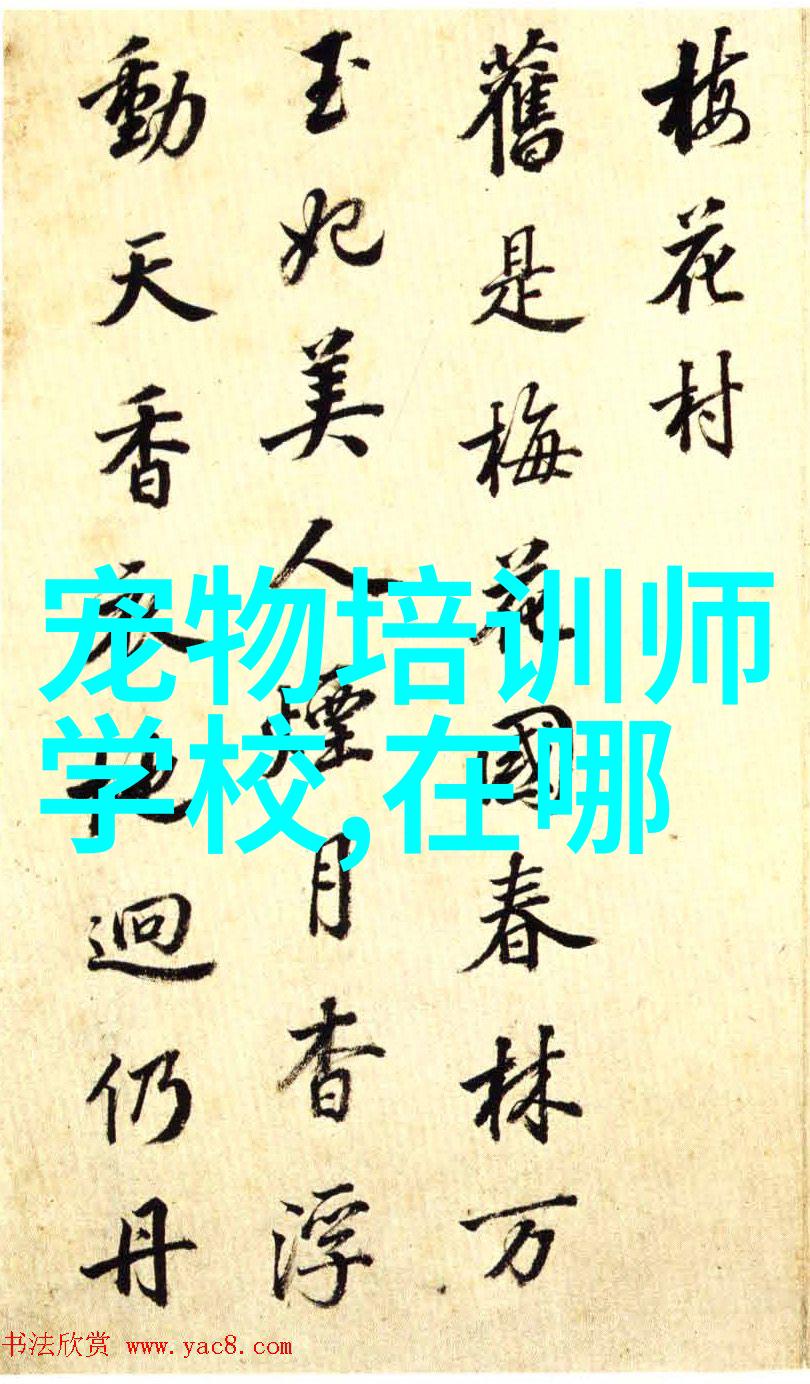 梅花村
舊是梅花國春林万
玉妃美人煙月杳浮
動天香衣袍迴仍丹
宠物培训师
学校,在哪
书法欣赏 www.yac8.com